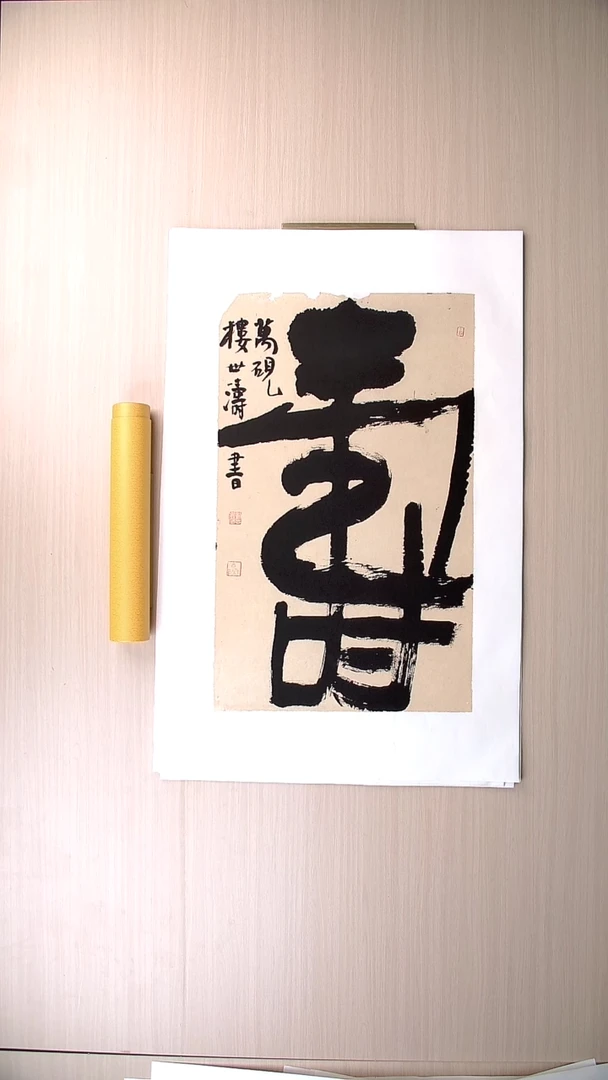 壽
萬硯
樓世濤
書